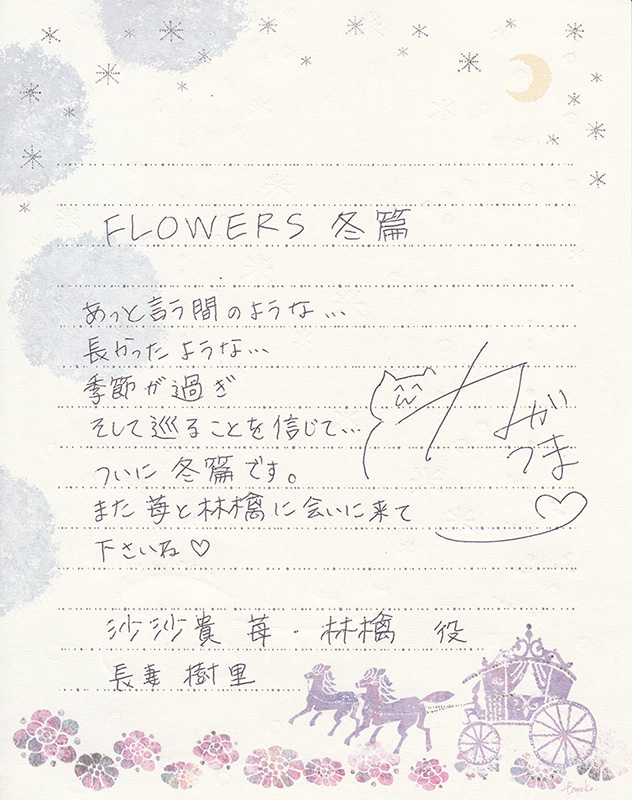 FLOWERS 冬篇
あっと言う間のような…
長かったような…
季節が過ぎ
そして巡ることを信じて…
ついに冬篇です。
また苺と林檎に会いに来て
下さいね♡
ながつま
沙沙貴 苺・林檎 役
長妻 樹里